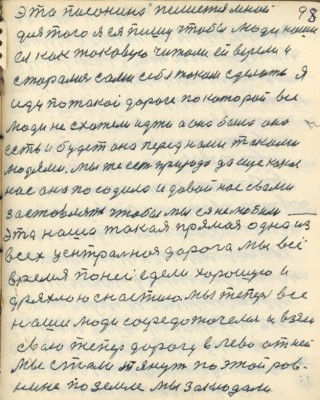 98
Эта писанина пишется мной
для того я ея пишу чтобы люди наши
ея как таковую читали ей верили и
старался сами себя таким сделать я
иду по такой дороге по которой все
люди не схотели идти а она была она
есть и будет она перед нами такими
людями. мы же есть природа да еще какая
нас она посодила и давай нас своими
заставлять чтобы мы ея не любили
Эта наша такая прямая одна из
всех центральная дорога мы всё
время по ней едем хорошую и
дряхлою снастию. мы тепер все
наши люди сосредоточели и взяли
свою тепер дорогу в лево от ней
мы стали тянут по этой ров-
нине по земле мы заглядали